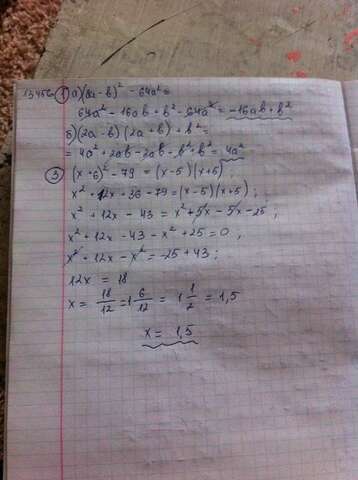 1) а) (8a - b)² - 64a² =
64a² - 16ab + b² - 64a² = -16ab + b²
б) (2a - b)(2a + b) + b² =
= 4a² + 2ab - 2ab - b² + b² = 4a²
3) (x + 6)² - 79 = (x - 5)(x + 5);
x² + 12x + 36 - 79 = (x - 5)(x + 5);
x² + 12x - 43 = x² + 5x - 5x - 25;
x² + 12x - 43 - x² + 25 = 0;
x² + 12x - x² = -25 + 43;
12x = 18
x = 18/12 = 1 6/12 = 1 1/2 = 1,5
x = 1,5